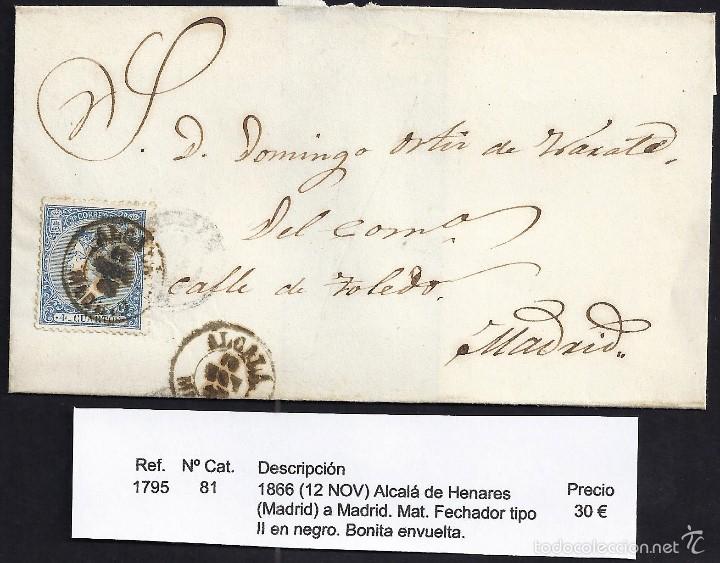 S.
D. Domingo Ortiz de Zárate.
Del Comº
calle de Toledo.
Madrid.
CORREOS
ALCALA
4 CUARTOS
ALCALA
Ref. Nº Cat. Descripción
1795 81 1866 (12 NOV) Alcalá de Henares Precio
(Madrid) a Madrid. Mat. Fechador tipo 30 €
II en negro. Bonita envuelta.
© todocoleccion.net